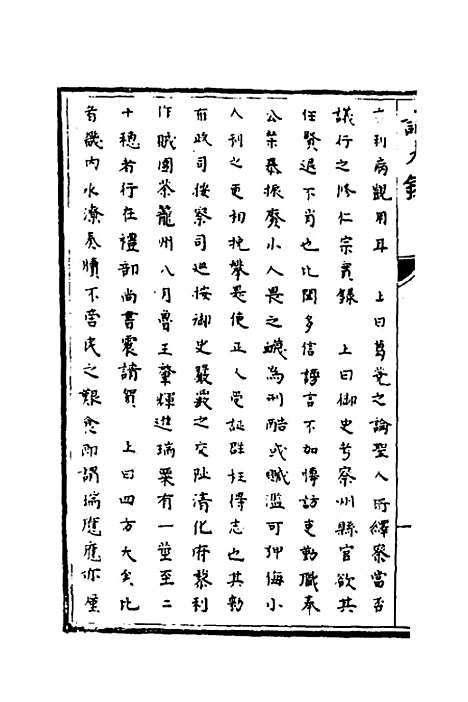 利病觀用耳　上曰蒭蕘之論聖人所繹察當否
議行之修仁宗實錄　上曰御史考察州縣官欲其
任賢退不肖也比聞多信譖言不加博訪吏勤職奉
公荣暴振廢小人畏之輒為刑酷或贓濫可狎侮小
人利之更相挽舉是使正人受誣群枉得志也其勑
布政司按察司巡按御史嚴覈之交阯清化府黎利
作賊圍茶籠州八月魯王肇煇進瑞粟有一莖至二
十穗者行在禮部尚書震請賀　上曰四方大矣比
者畿内水潦奏牘不啻民之艱愈即謂瑞應應亦僅